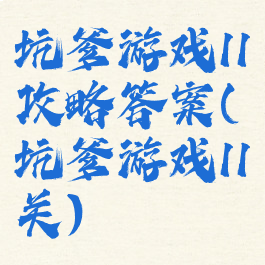 坑爹游戏11
攻略答案(
坑爹游戏11
关)